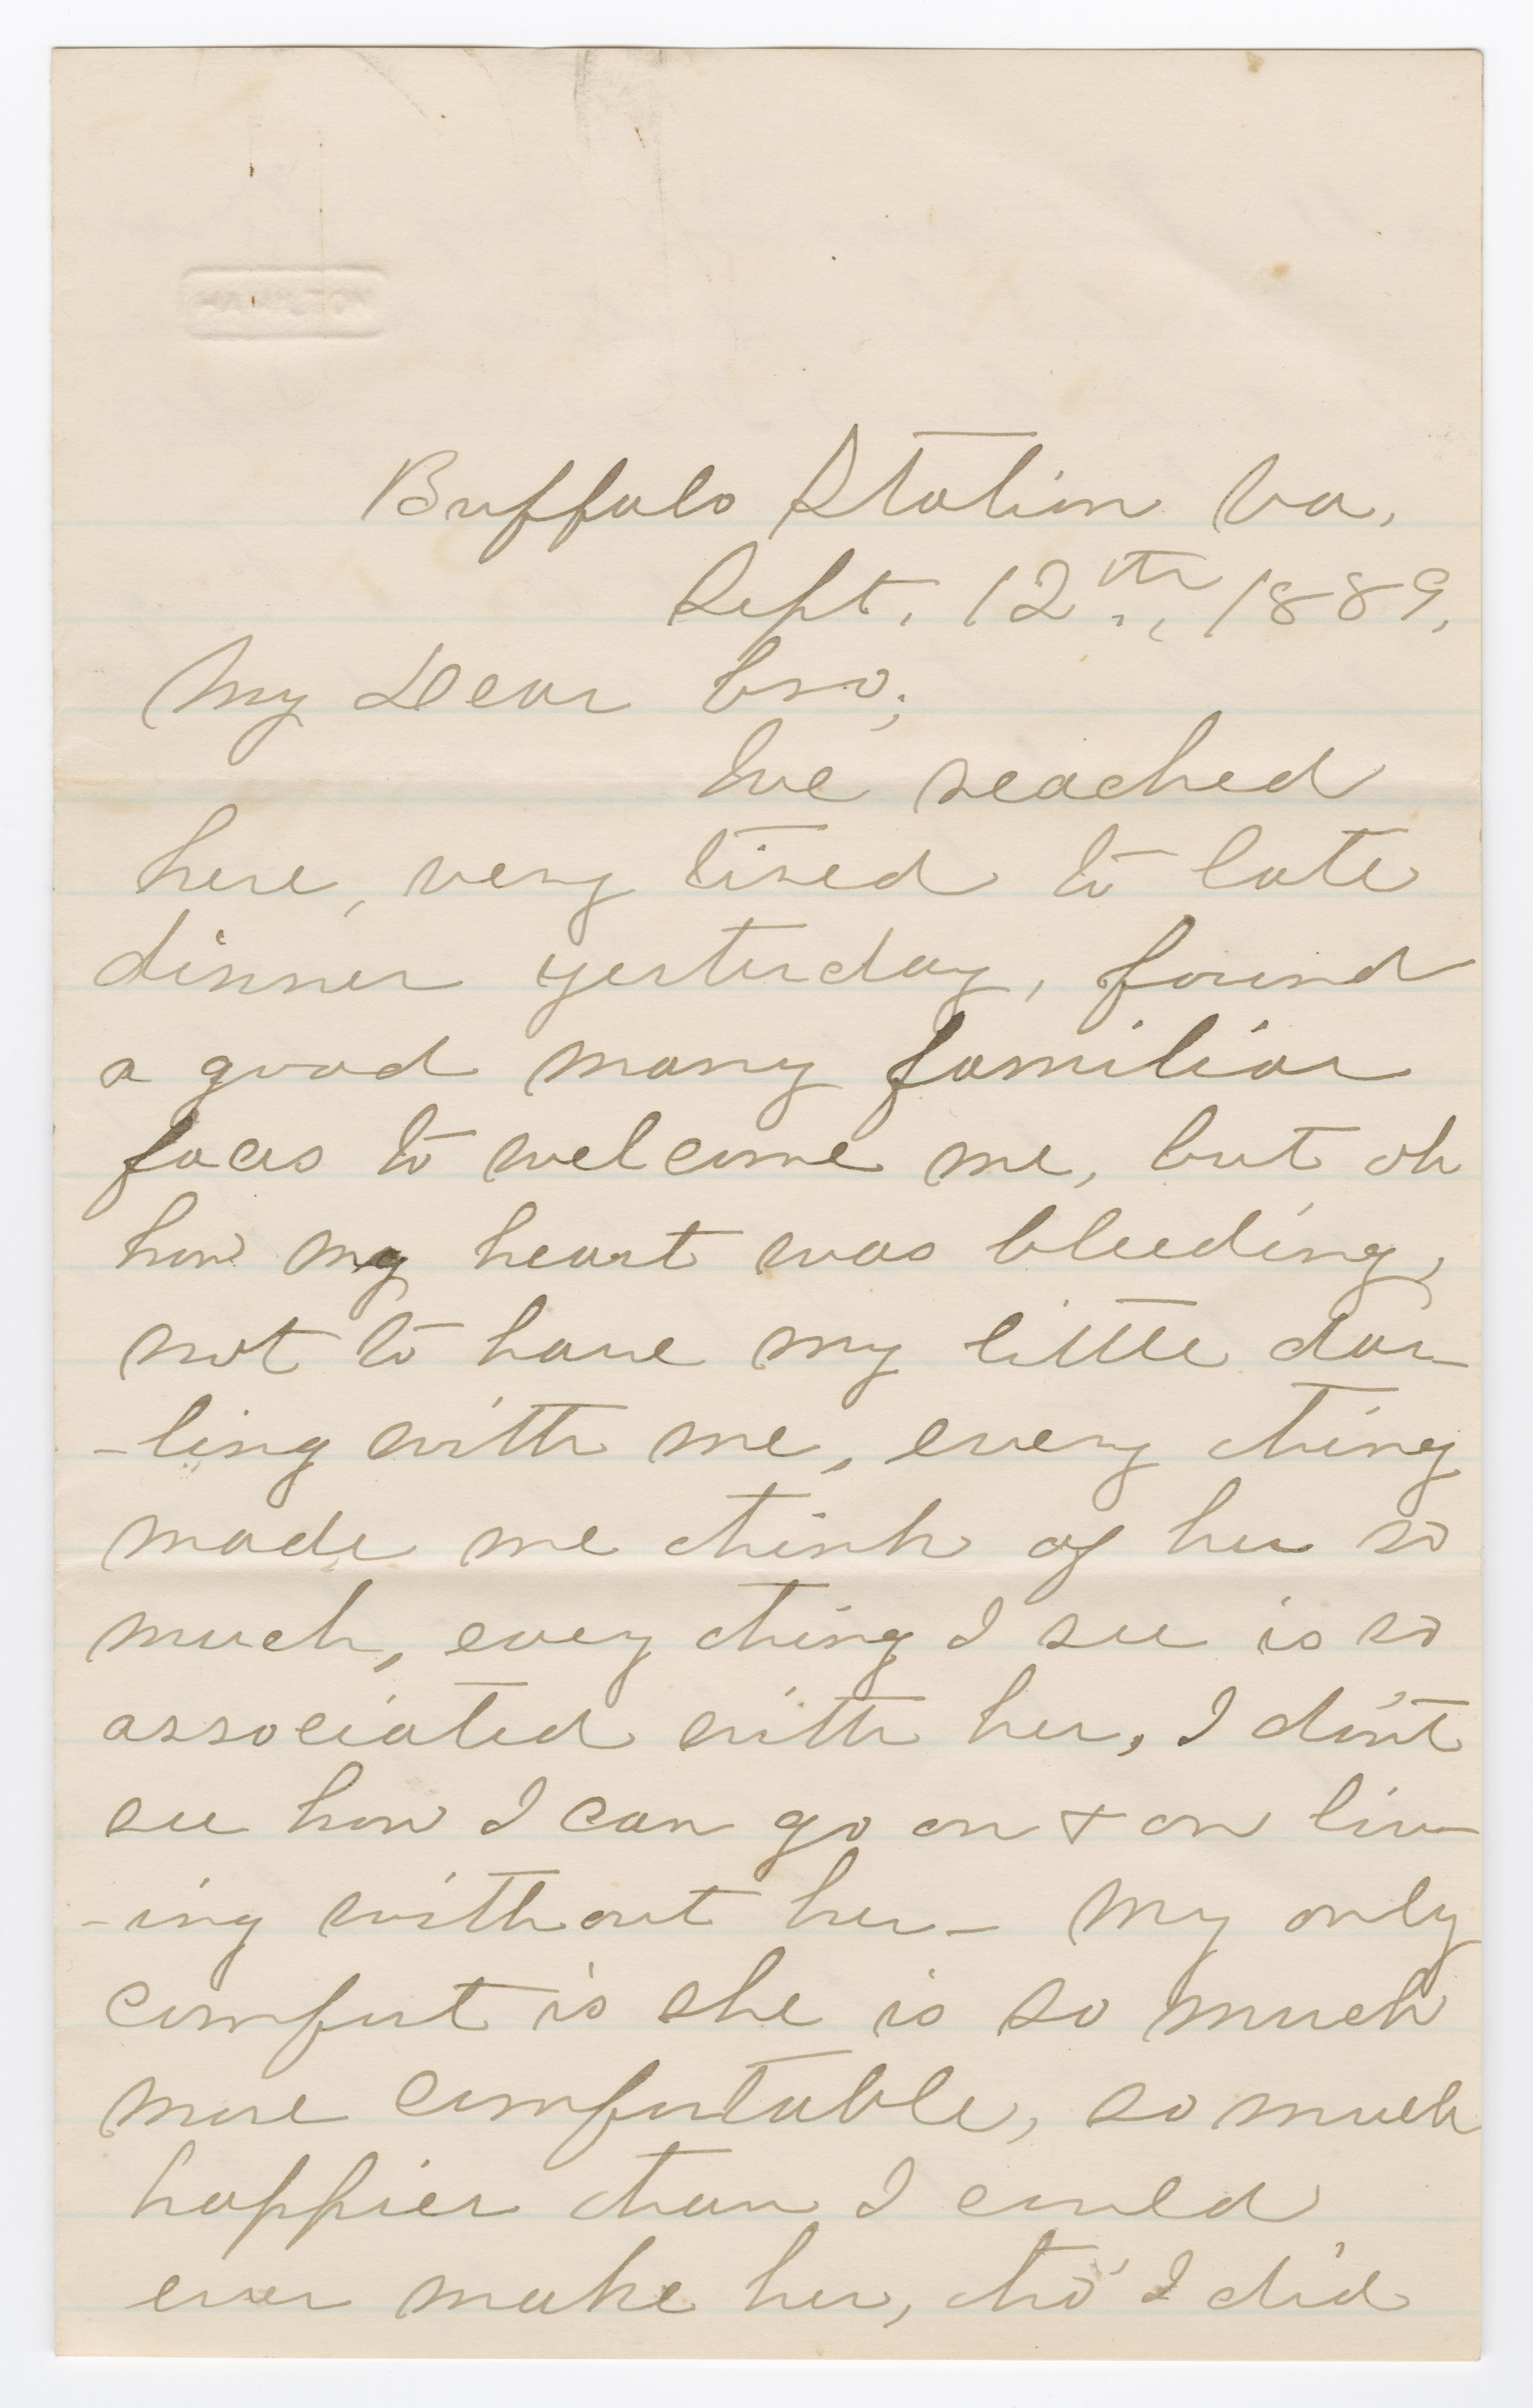 HAMILTON
Buffalo Station Va.
Sept. 12th., 1889.
My Dear Bro;
We reached
here, very tired to late
dinner yesterday, found
a good many familiar
faces to welcome me, but oh
how my heart was bleeding,
not to have my little dar-
-ling with me, every thing
made me think of her so
much, every thing I see is so
associated with her, I don't
see how I can go on & on liv-
-ing without her - My only
comfort is she is so much
more comfortable, so much
happier than I could
ever make her, tho' I did